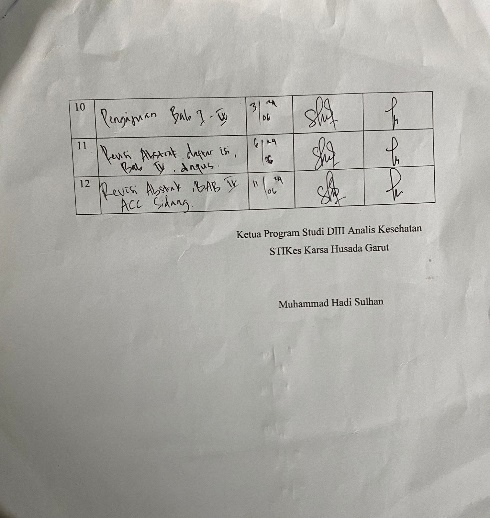 10 Pengajuan Bab I - IV 3/06
11 Revisi Abstrak daftar isi,
Bab IV, 6/06
12 Revisi Abstrak BAB IV 11/06
ACC Sidang.
Ketua Program Studi DIII Analis Kesehatan
STIKes Karsa Husada Garut
Muhammad Hadi Sulhan